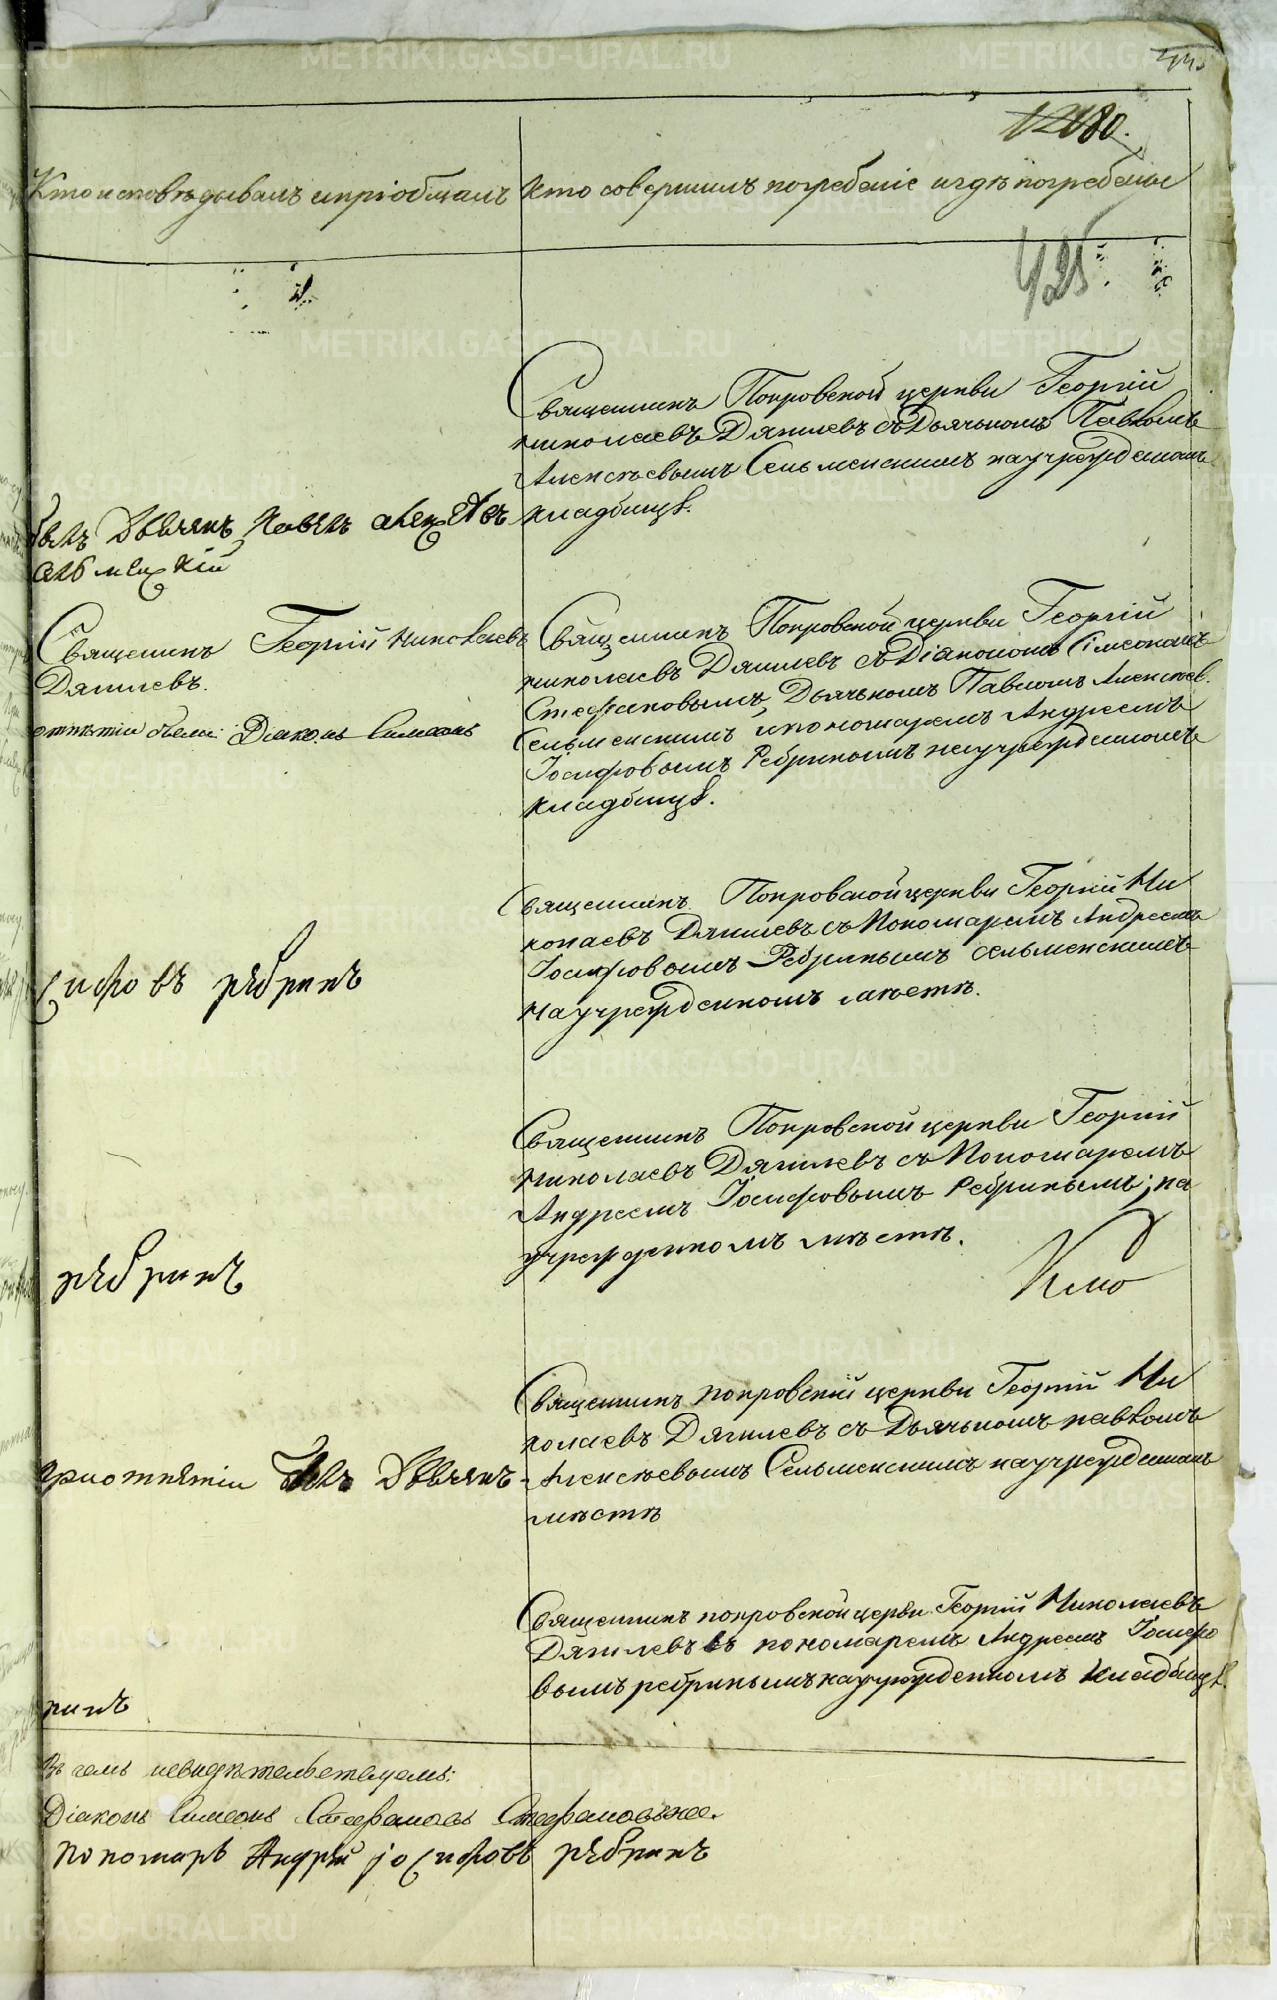 1280.
Кто исповѣдывалъ и пріобщалъ
Кто совершилъ погребеніе и гдѣ погребены
425
Священникъ Покровской церкви Георгій
Николаевъ Дягилевъ съ Дьячькомъ Павломъ
Алексѣевымъ Сельменскимъ на учрежденномъ
кладбищѣ.
былъ Дьячекъ Павелъ Алексѣевъ
Сельменскій
Священникъ Георгій Николаевъ
Дягилевъ.
отпѣтіи были: Діаконъ Симеонъ
Священникъ Покровской церкви Георгій
Николаевъ Дягилевъ съ Діакономъ Симеономъ
Стефановымъ, Дьячькомъ Павломъ Алексѣев.
Сельменскимъ и пономаремъ Андреемъ
Іосифовымъ Ребринымъ на учрежденномъ
кладбищѣ.
Священникъ Покровской церкви Георгій Ни
колаевъ Дягилевъ съ Пономаремъ Андреемъ
Іосифовымъ Ребринымъ Сельменскимъ
на учрежденномъ мѣстѣ.
сифовъ рѣбринъ
Священникъ Покровской церкви Георгій
Николаевъ Дягилевъ съ Пономаремъ
Андреемъ Іосифовымъ Ребринымъ; на
учрежденномъ мѣстѣ.
рѣбринъ
Кто
Священникъ покровскій церкви Георгій Ни
колаевъ Дягилевъ съ Дьячькомъ павломъ
Алексѣевымъ Сельменскимъ на учрежденномъ
мѣстѣ
при отпѣтіи былъ Дьячекъ
Священникъ покровской церкви Георгій Николаевъ
Дягилевъ съ пономаремъ Андреемъ Іосифо
вымъ ребринымъ на учрежденномъ кладбищѣ.
ринъ
въ чемъ и свидѣтельствуемъ:
Діаконъ Симеонъ Стефановъ
Пономарь Андрѣй іосифовъ рѣбринъ
METRIKI.GASO-URAL.RU